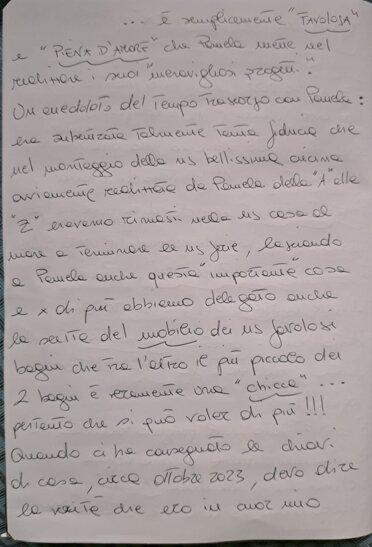 ... è semplicemente "FAVOLOSA"
e "PIENA D'AMORE" che Pamela mette nel
realizzare i suoi "meravigliosi progetti".
Un aneddoto del tempo trascorso con Pamela:
era subentrata talmente tanta fiducia che
nel montaggio della ns bellissima cucina
ovviamente realizzata da Pamela dalla "A" alla
"Z" eravamo rimasti nella ns casa al
mare a terminare le ns ferie, lasciando
a Pamela anche questa "importante" cosa
e x di più abbiamo delegato anche
la scelta del mobilio dei ns favolosi
bagni che tra l'altro il più piccolo dei
2 bagni è veramente una "chicca" ...
pertanto che si può voler di più !!!
Quando ci ha consegnato le chiavi
di casa, circa ottobre 2023, devo dire
la verità che ero in cuor mio